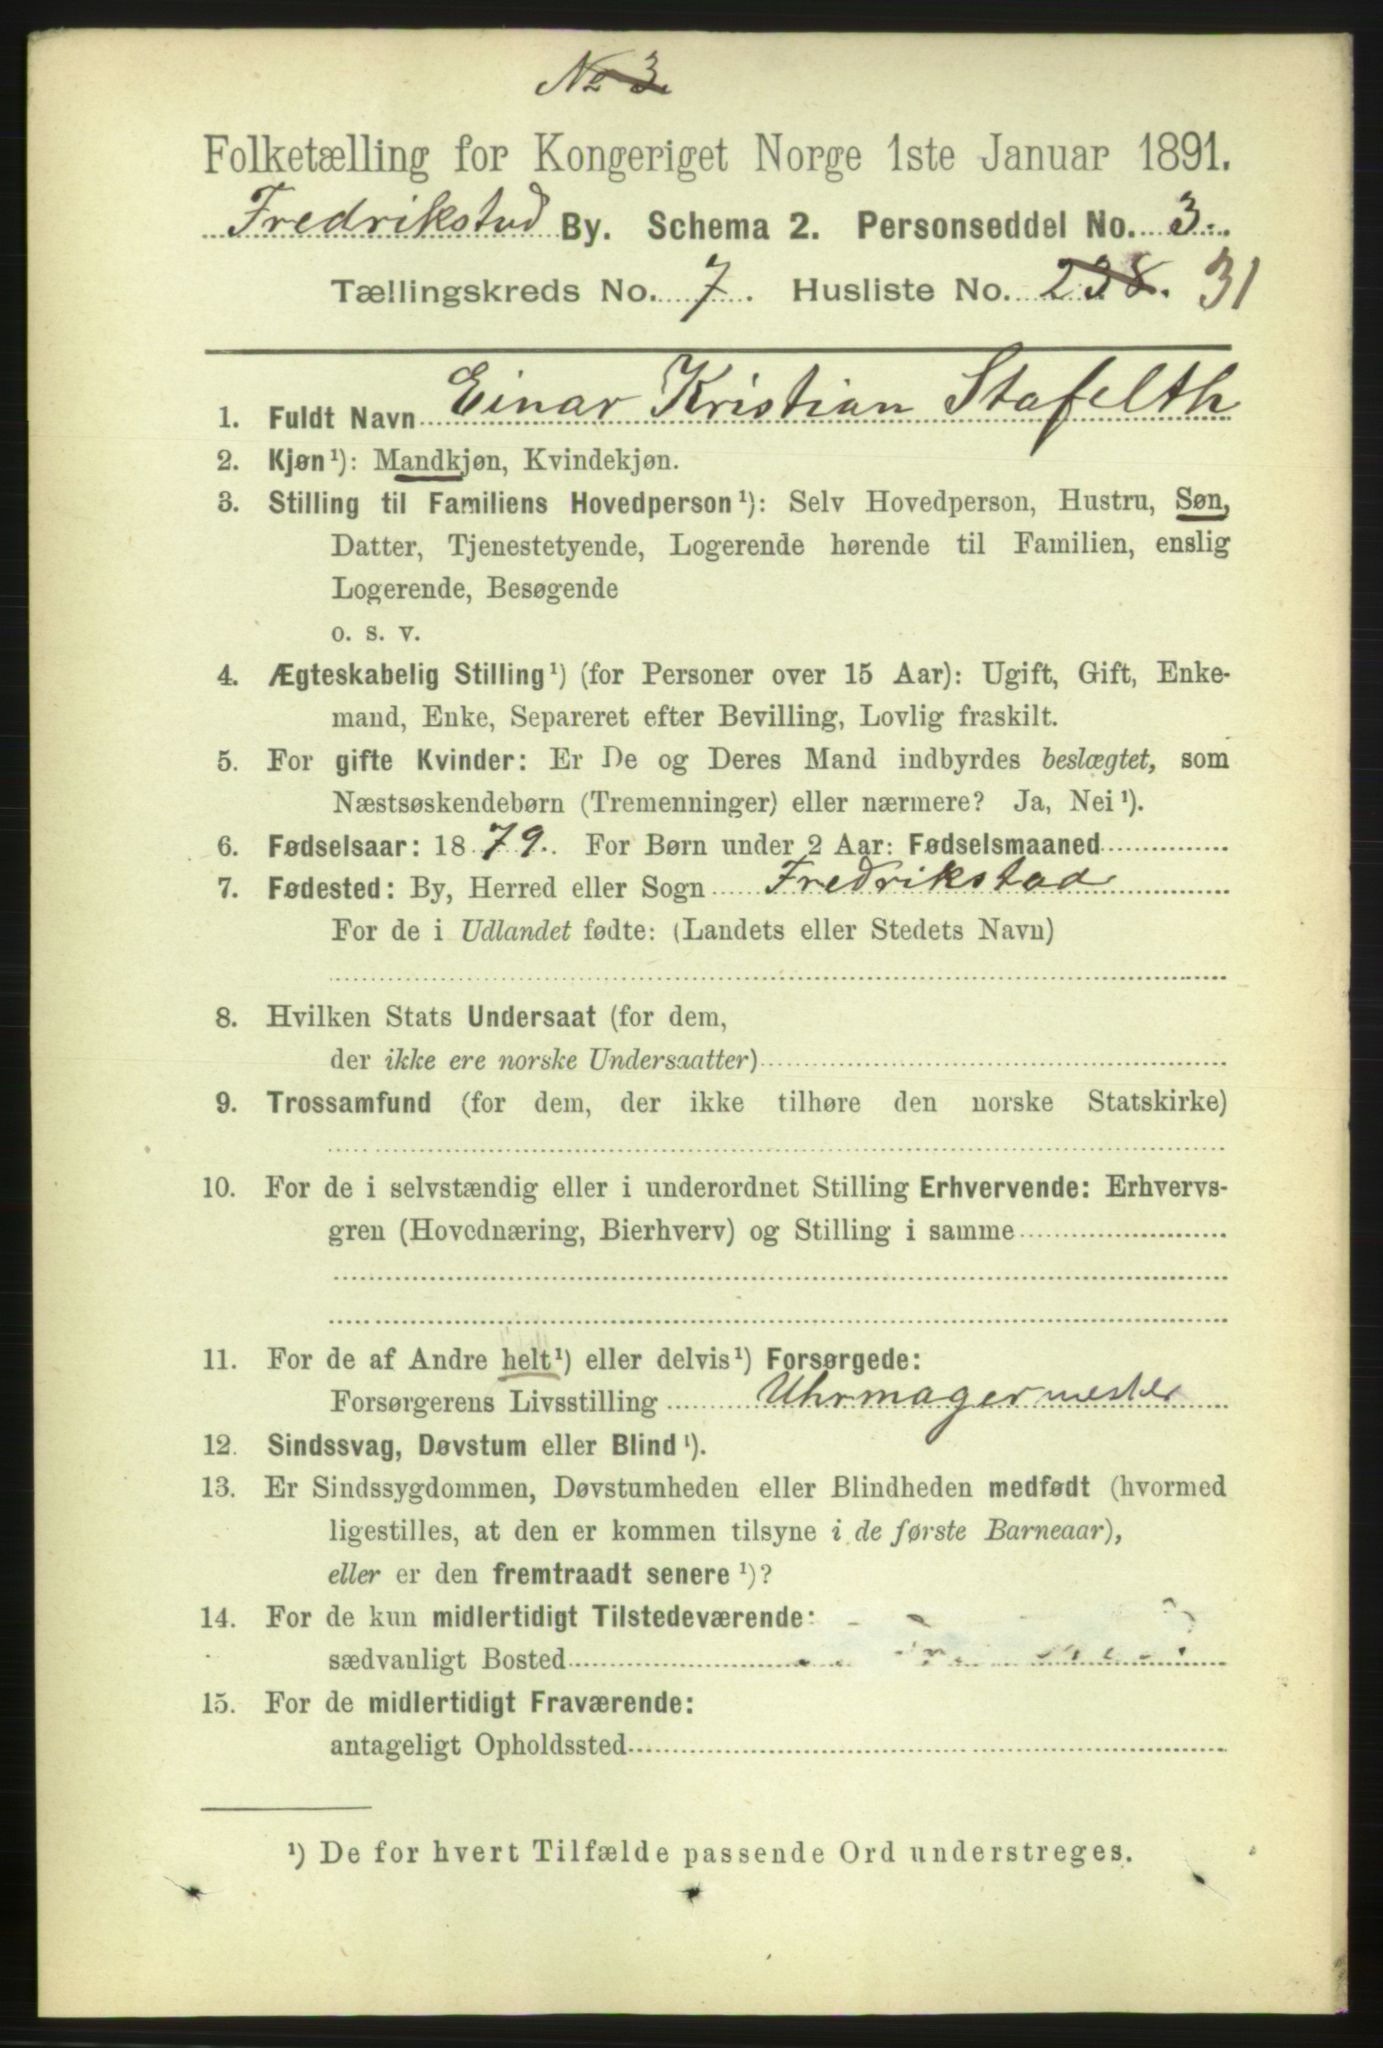 No 3.
Folketælling for Kongeriget Norge 1ste Januar 1891.
Fredrikstad By. Schema 2. Personseddel No. 3.
Tællingskreds No. 7. Husliste No. 238. 31
1. Fuldt Navn Einar Kristian Stafelth
2. Kjøn¹): Mandkjøn, Kvindekjøn.
3. Stilling til Familiens Hovedperson¹): Selv Hovedperson, Hustru, Søn,
Datter, Tjenestetyende, Logerende hørende til Familien, enslig
Logerende, Besøgende
o. s. v.
4. Ægteskabelig Stilling¹) (for Personer over 15 Aar): Ugift, Gift, Enke-
mand, Enke, Separeret efter Bevilling, Lovlig fraskilt.
5. For gifte Kvinder: Er De og Deres Mand indbyrdes beslægtet, som
Næstsøskendebørn (Tremenninger) eller nærmere? Ja, Nei¹).
6. Fødselsaar: 1879. For Børn under 2 Aar: Fødselsmaaned
7. Fødested: By, Herred eller Sogn Fredrikstad
For de i Udlandet fødte: (Landets eller Stedets Navn)
8. Hvilken Stats Undersaat (for dem,
der ikke ere norske Undersaatter)
9. Trossamfund (for dem, der ikke tilhøre den norske Statskirke)
10. For de i selvstændig eller i underordnet Stilling Erhvervende: Erhvervs-
gren (Hovednæring, Bierhverv) og Stilling i samme
11. For de af Andre helt¹) eller delvis¹) Forsørgede:
Forsørgerens Livsstilling Uhrmagermester
12. Sindssvag, Døvstum eller Blind¹).
13. Er Sindssygdommen, Døvstumheden eller Blindheden medfødt (hvormed
ligestilles, at den er kommen tilsyne i de første Barneaar),
eller er den fremtraadt senere¹)?
14. For de kun midlertidigt Tilstedeværende:
sædvanligt Bosted
15. For de midlertidigt Fraværende:
antageligt Opholdssted
¹) De for hvert Tilfælde passende Ord understreges.